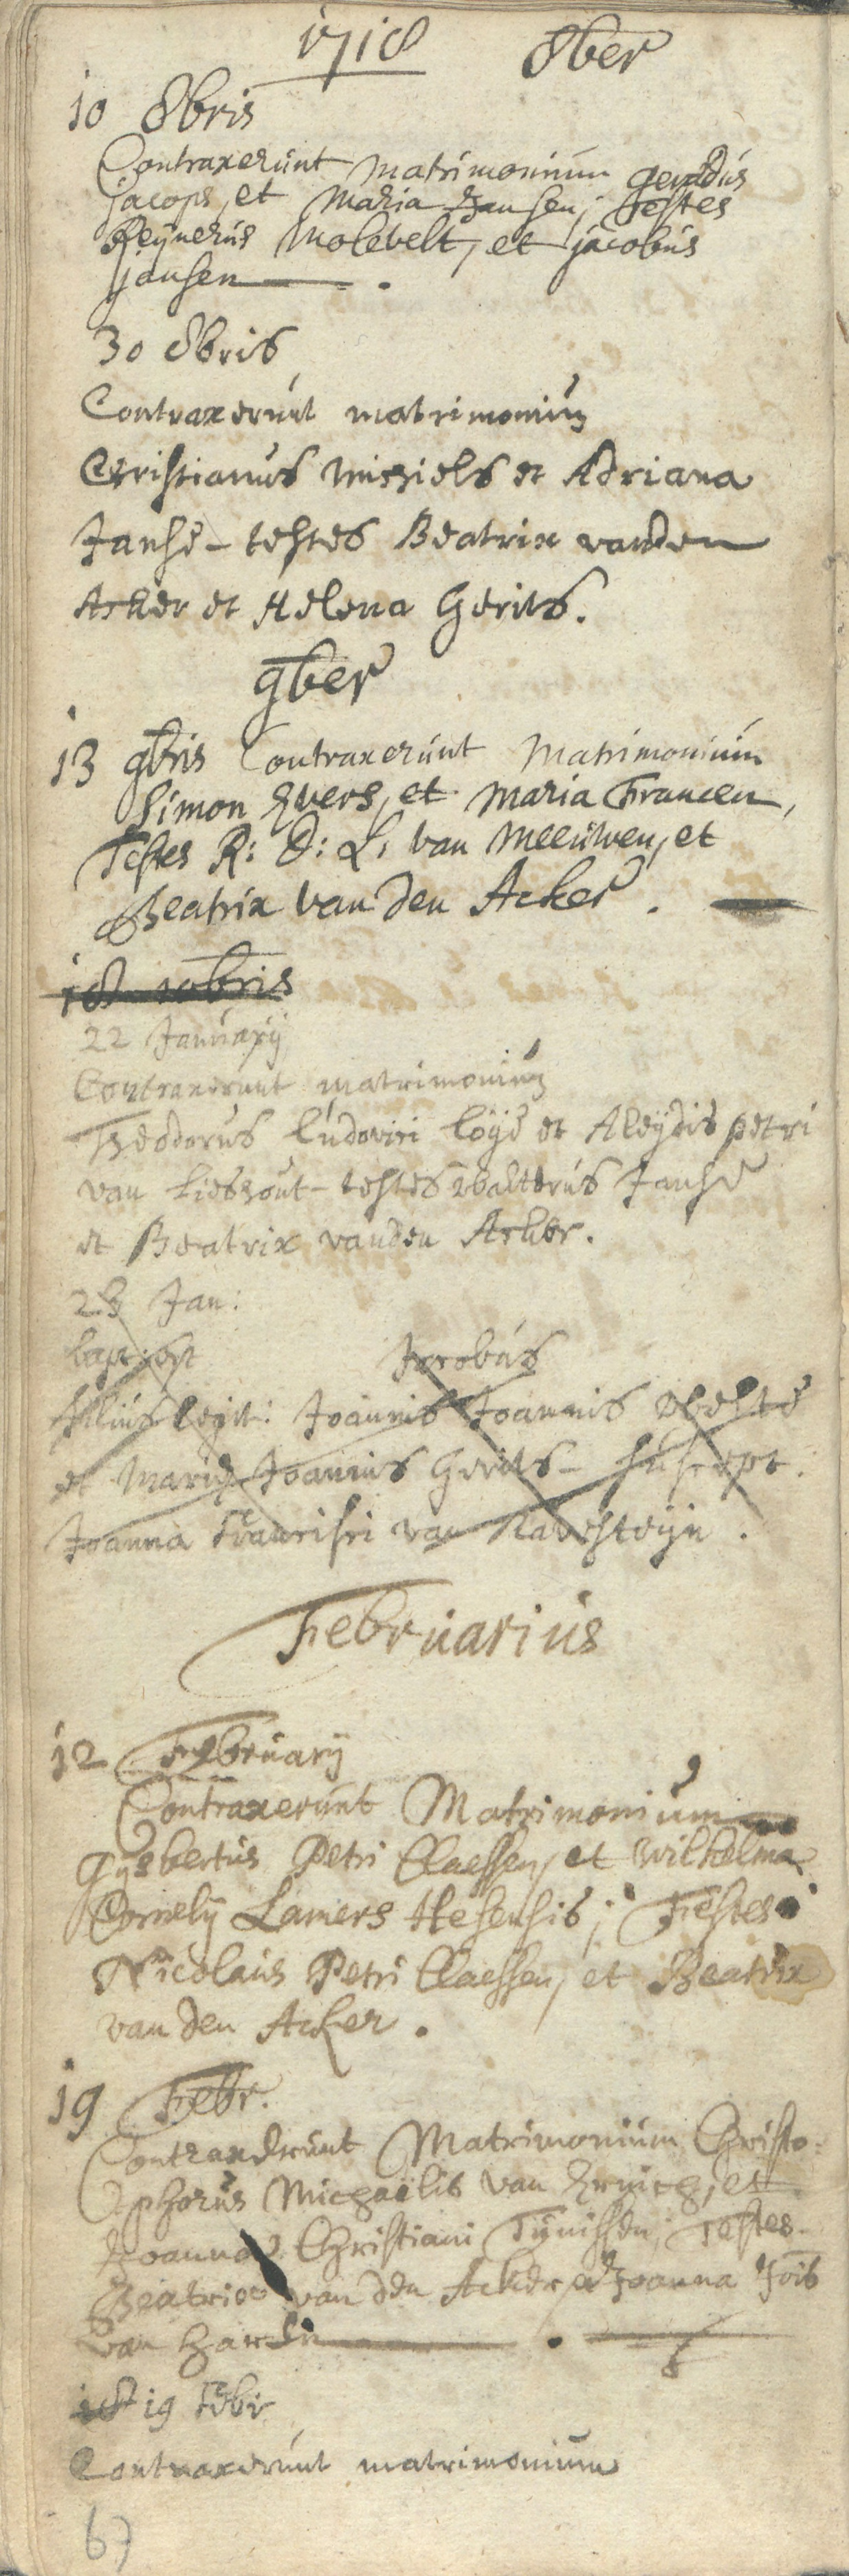 1718 8ber
10 8bris
Contraxerunt matrimonium
jacops, et Maria Jansen; Testes
Reijnerus Molevelt, et jacobus
jansen
30 8bris
Contraxerunt matrimonium
Christianus Michiels et Adriana
Janse - testes Beatrix vanden
Acker et Helena Gerits.
9ber
13 9bris Contraxerunt Matrimonium
Simon Evers, et Maria Francen,
Testes R: D: L: van Meeuwen, et
Beatrix van den Acker.
18 10bris
22 Januarij
Contraxerunt matrimonium
Theodorus Ludovici Loije et Aleijdis petri
van Lieshout - testes Walterus Janse
et Beatrix vanden Acker.
Jan:
bapt: est Jacobus
filius legit: Joannis Joannis
et Mariae Joannis Gerits - suscept:
Joanna Francisci van Ravesteijn.
Februarius
12 Februarij
Contraxerunt Matrimonium
Gijsbertus Petri Claessen, et Wilhelma
Cornelij Lamers Hesensis; Testes
Nicolaus Petri Claessen, et Beatrix
van den Acker.
19 Febr.
Contraxerunt Matrimonium Christo=
phorus Michaëlis van et
Joanna Christiani Tijnissen; Testes
Beatrice van den Acker et Joanna Jois
van
19 Febr
Contraxerunt matrimonium
67